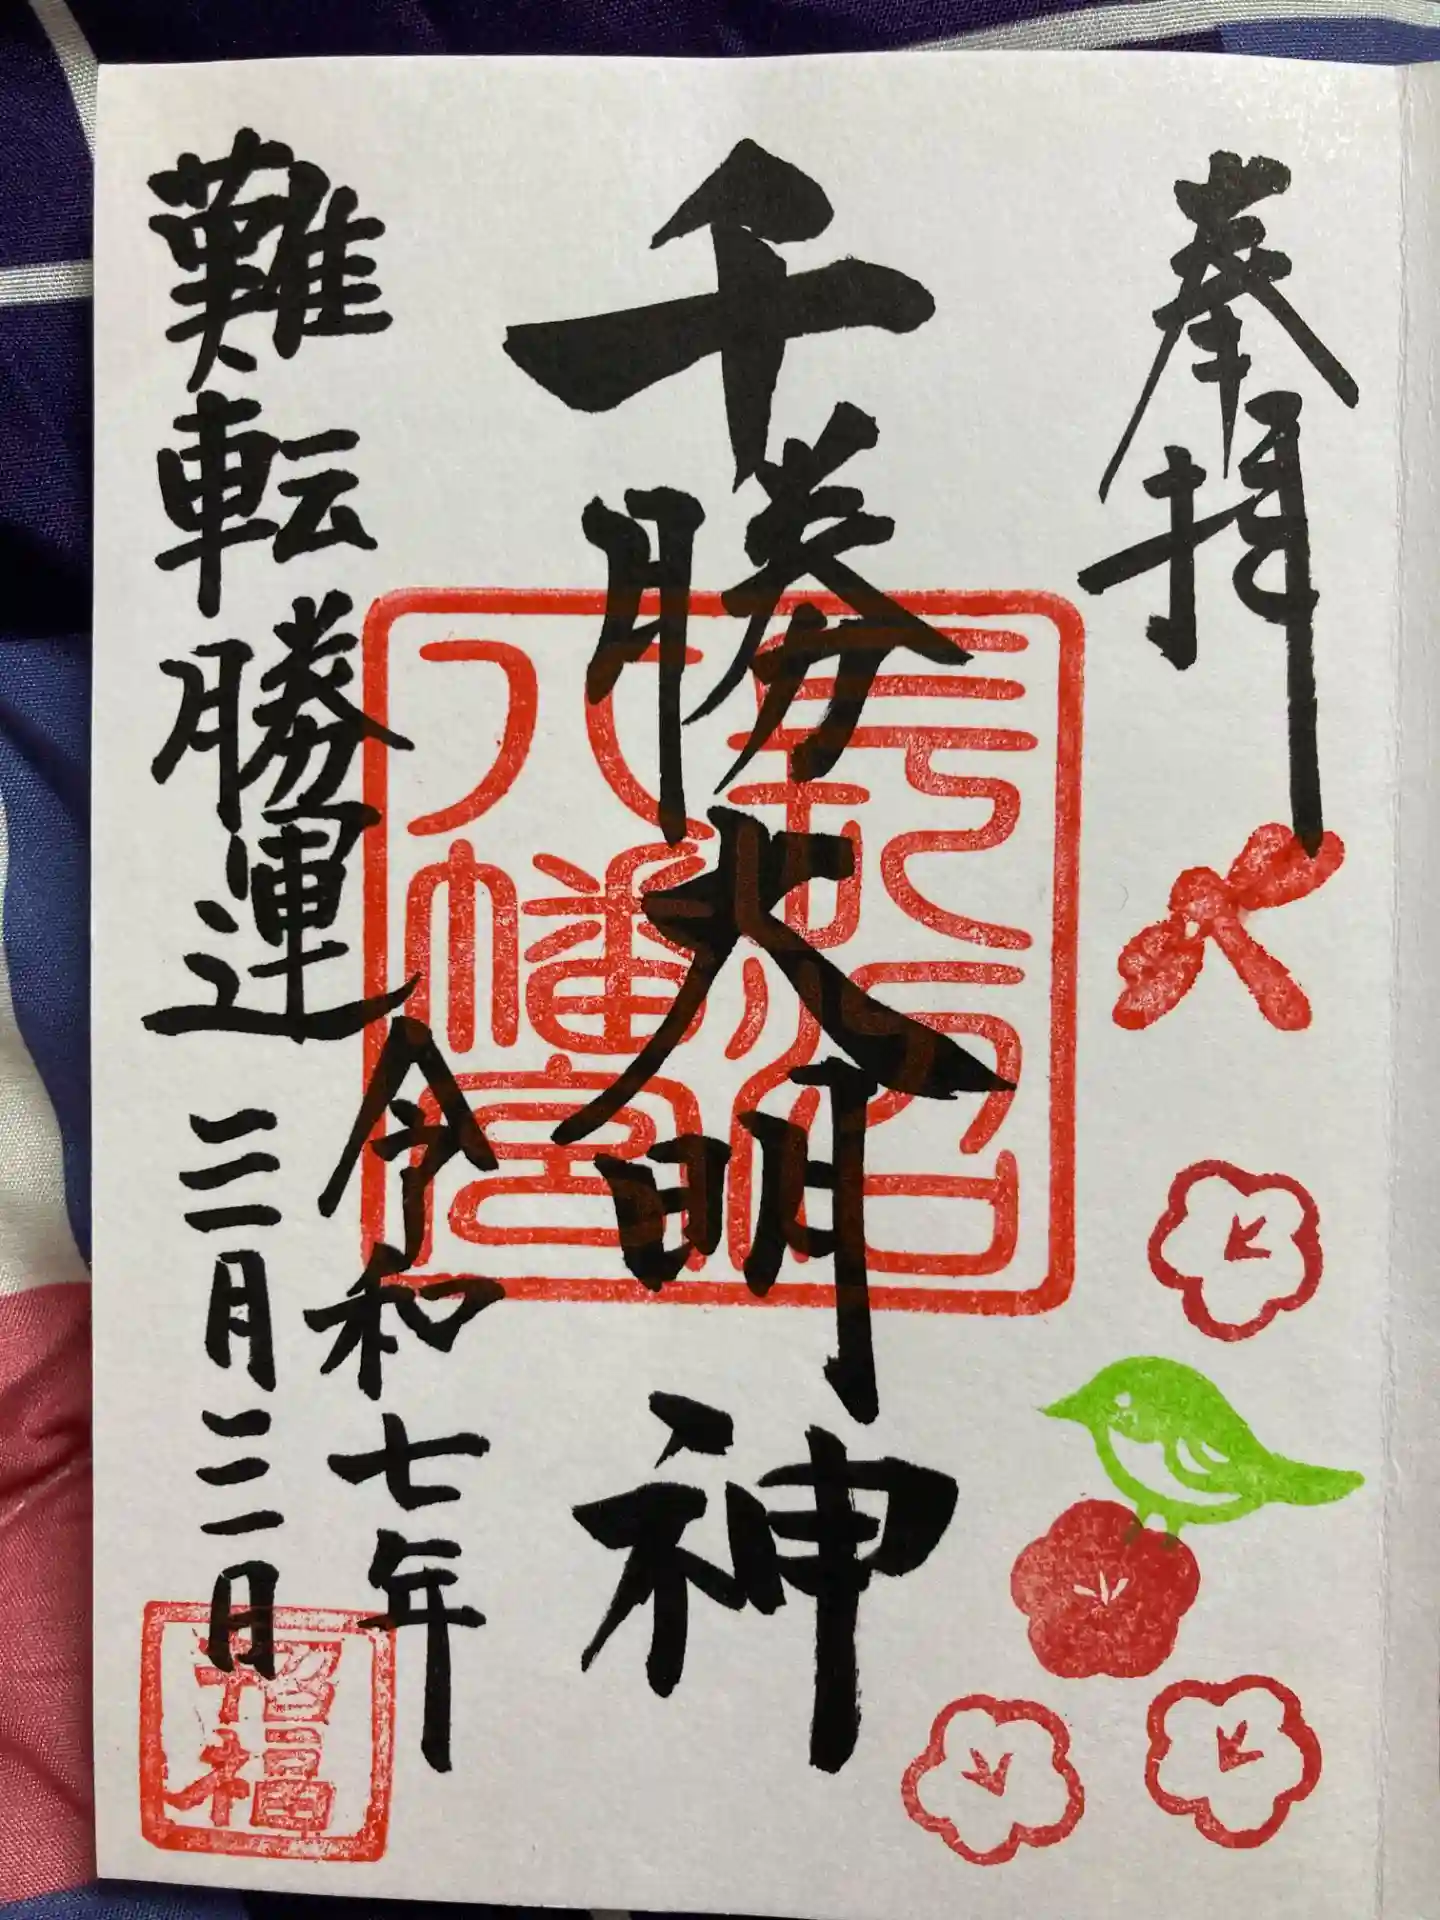 奉拝
千勝大明神
八幡宮
難転勝運
令和七年
三月三日
招福